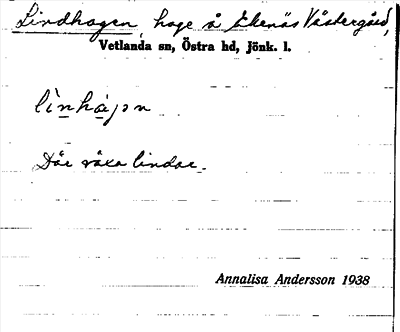 Lindhagen, hage å Ekenäs Västergård,
Vetlanda sn, Östra hd, jönk. l.
Där växa lindar.
Annalisa Andersson 1938